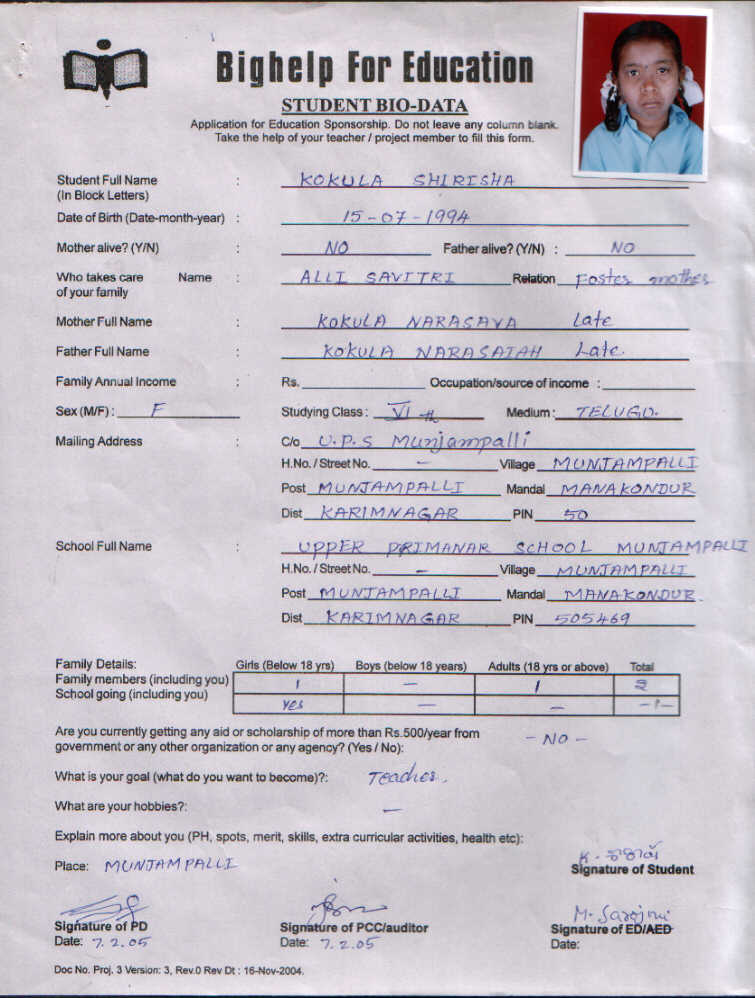 Bighelp For Education
STUDENT BIO-DATA
Application for Education Sponsorship. Do not leave any column blank.
Take the help of your teacher / project member to fill this form.
Student Full Name : KOKULA SHIRISHA
(In Block Letters)
Date of Birth (Date-month-year) : 15-07-1994
Mother alive? (Y/N) : NO Father alive? (Y/N) : NO
Who takes care Name : ALLI SAVITRI Relation Foster mother
of your family
Mother Full Name : KOKULA NARASAVA Late
Father Full Name : KOKULA NARASAIAH Late.
Family Annual Income : Rs. Occupation/source of income :
Sex (M/F) : F Studying Class : VI th Medium : TELUGU.
Mailing Address : C/o U.P.S Munjampalli
H.No. / Street No. – Village MUNJAMPALLI
Post MUNJAMPALLI Mandal MANAKONDUR
Dist KARIMNAGAR PIN 50
School Full Name : UPPER PRIMANAR SCHOOL MUNJAMPALLI
H.No. / Street No. – Village MUNJAMPALLI
Post MUNJAMPALLI Mandal MANAKONDUR.
Dist KARIMNAGAR PIN 505469
Family Details: Girls (Below 18 yrs) Boys (below 18 years) Adults (18 yrs or above) Total
Family members (including you) 1 – 1 2
School going (including you) yes – – -1-
Are you currently getting any aid or scholarship of more than Rs.500/year from
government or any other organization or any agency? (Yes / No): - NO -
What is your goal (what do you want to become)?: Teacher.
What are your hobbies?: –
Explain more about you (PH, spots, merit, skills, extra curricular activities, health etc):
Place: MUNJAMPALLI
Signature of Student
M. Sarojini
Signature of PD Signature of PCC/auditor Signature of ED/AED
Date: 7.2.05 Date: 7.2.05 Date:
Doc No. Proj. 3 Version: 3, Rev.0 Rev Dt : 16-Nov-2004.